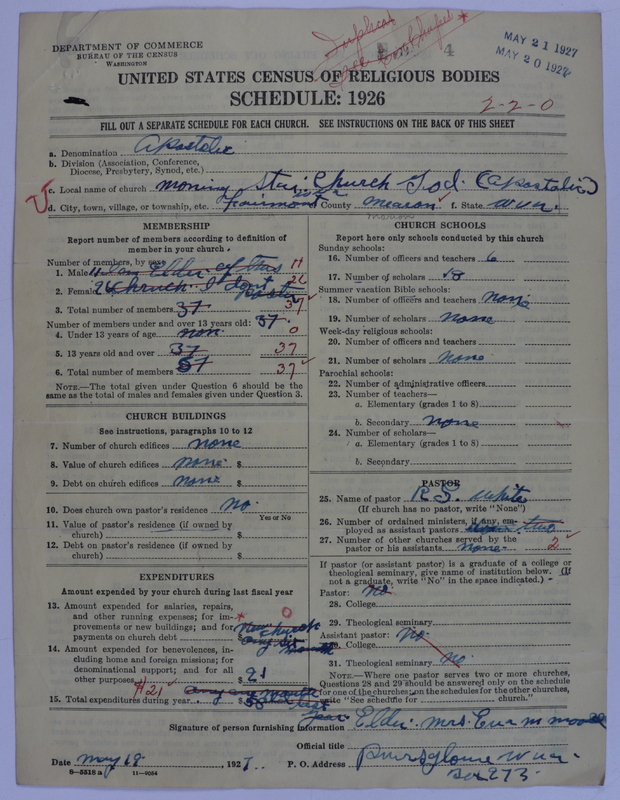 Duplicate
4
MAY 21 1927
MAY 20 1927
DEPARTMENT OF COMMERCE
BUREAU OF THE CENSUS
WASHINGTON
UNITED STATES CENSUS OF RELIGIOUS BODIES
SCHEDULE: 1926
2-2-0
FILL OUT A SEPARATE SCHEDULE FOR EACH CHURCH. SEE INSTRUCTIONS ON THE BACK OF THIS SHEET
a. Denomination Apostolic
b. Division (Association, Conference,
Diocese, Presbytery, Synod, etc.)
c. Local name of church Morning Star Church God (Apostolic)
d. City, town, village, or township, etc. Fairmont e. County Mearon f. State W Va.
Marion
MEMBERSHIP
Report number of members according to definition of
member in your church.
Number of members, by sex:
1. Male 11 I am Elder of this 11
2. Female 26 Church I don't Pastor 26
3. Total number of members 37 37
Number of members under and over 13 years old: 37
4. Under 13 years of age non 0
5. 13 years old and over 37 37
6. Total number of members 37 37
NOTE.—The total given under Question 6 should be the
same as the total of males and females given under Question 3.
CHURCH BUILDINGS
See instructions, paragraphs 10 to 12
7. Number of church edifices none
8. Value of church edifices none $
9. Debt on church edifices none $
10. Does church own pastor's residence? No.
Yes or No
11. Value of pastor's residence (if owned by
church) $
12. Debt on pastor's residence (if owned by
church) $
EXPENDITURES
Amount expended by your church during last fiscal year
13. Amount expended for salaries, repairs,
and other running expenses; for im-
provements or new buildings; and for
payments on church debt * 0 church
14. Amount expended for benevolences, in-
cluding home and foreign missions; for
denominational support; and for all
other purposes $ 21
15. Total expenditures during year $21 $
last year
CHURCH SCHOOLS
Report here only schools conducted by this church
Sunday schools:
16. Number of officers and teachers 6
17. Number of scholars 13
Summer vacation Bible schools:
18. Number of officers and teachers none
19. Number of scholars none
Week-day religious schools:
20. Number of officers and teachers
21. Number of scholars none
Parochial schools:
22. Number of administrative officers
23. Number of teachers—
a. Elementary (grades 1 to 8)
b. Secondary none
24. Number of scholars—
a. Elementary (grades 1 to 8)
b. Secondary
PASTOR
25. Name of pastor R.G. White
(If church has no pastor, write "None")
26. Number of ordained ministers, if any, em-
ployed as assistant pastors two 2
27. Number of other churches served by the
pastor or his assistants none
If pastor (or assistant pastor) is a graduate of a college or
theological seminary, give name of institution below. (If
not a graduate, write "No" in the space indicated.)
Pastor: no
28. College
29. Theological seminary
Assistant pastor: No
30. College
31. Theological seminary No
NOTE.—Where one pastor serves two or more churches,
Questions 28 and 29 should be answered only on the schedule
for one of the churches; on the schedules for the other churches,
write "See schedule for church."
Signature of person furnishing information Elder. Mrs. Eva M Moore
Official title
Date May 18, 1927. P. O. Address Pursglove W Va.
Box 273.
8-5518 a 11-9084